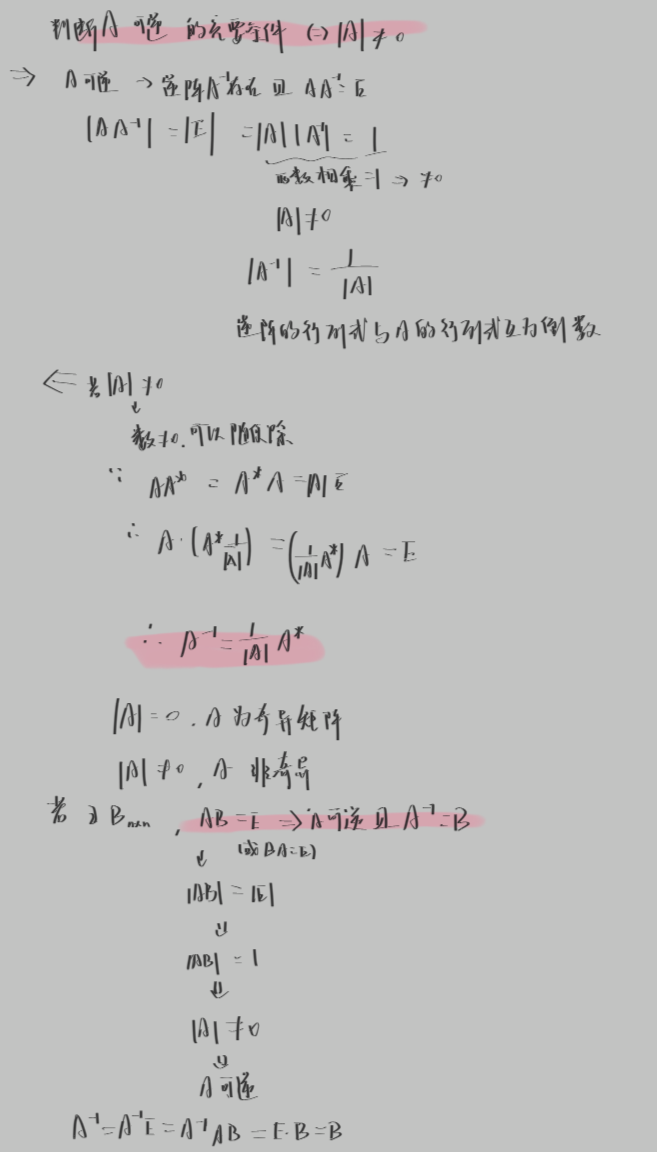 判断A可逆的充要条件 (=) |A| ≠ 0
⇒ A可逆 → 逆阵A⁻¹存在 且 AA⁻¹=E
|AA⁻¹| = |E| = |A||A⁻¹| = 1
两数相乘=1 → ≠0
|A| ≠ 0
|A⁻¹| = 1/|A|
逆阵的行列式与A的行列式互为倒数
⇐ 若|A| ≠ 0
↓
数≠0. 可以随便除
∵ AA* = A*A = |A|E
∴ A·(A* 1/|A|) = (1/|A| A*) A = E
∴ A⁻¹ = 1/|A| A*
|A| = 0 . A为奇异矩阵
|A| ≠ 0 , A 非奇异
若 ∃ Bₙₓₙ , AB = E ⇒ A可逆 且 A⁻¹ = B
↓ (或BA=E)
|AB| = |E|
⇓
|AB| = 1
⇓
|A| ≠ 0
⇓
A可逆
A⁻¹ = A⁻¹E = A⁻¹AB = E·B = B